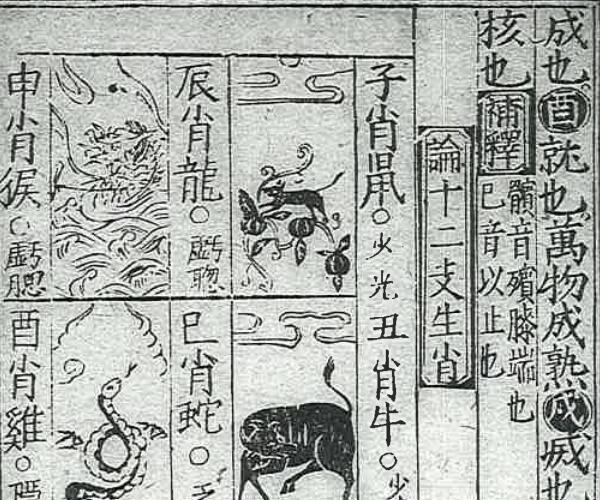 成也酉就也萬物成熟戌烕也
核也補釋髕音殯膝端也
巳音以止也
論十二支生肖
子肖鼠○少光丑肖牛○少
辰肖龍○虧聰巳肖蛇○
申肖猴○虧腮酉肖雞○